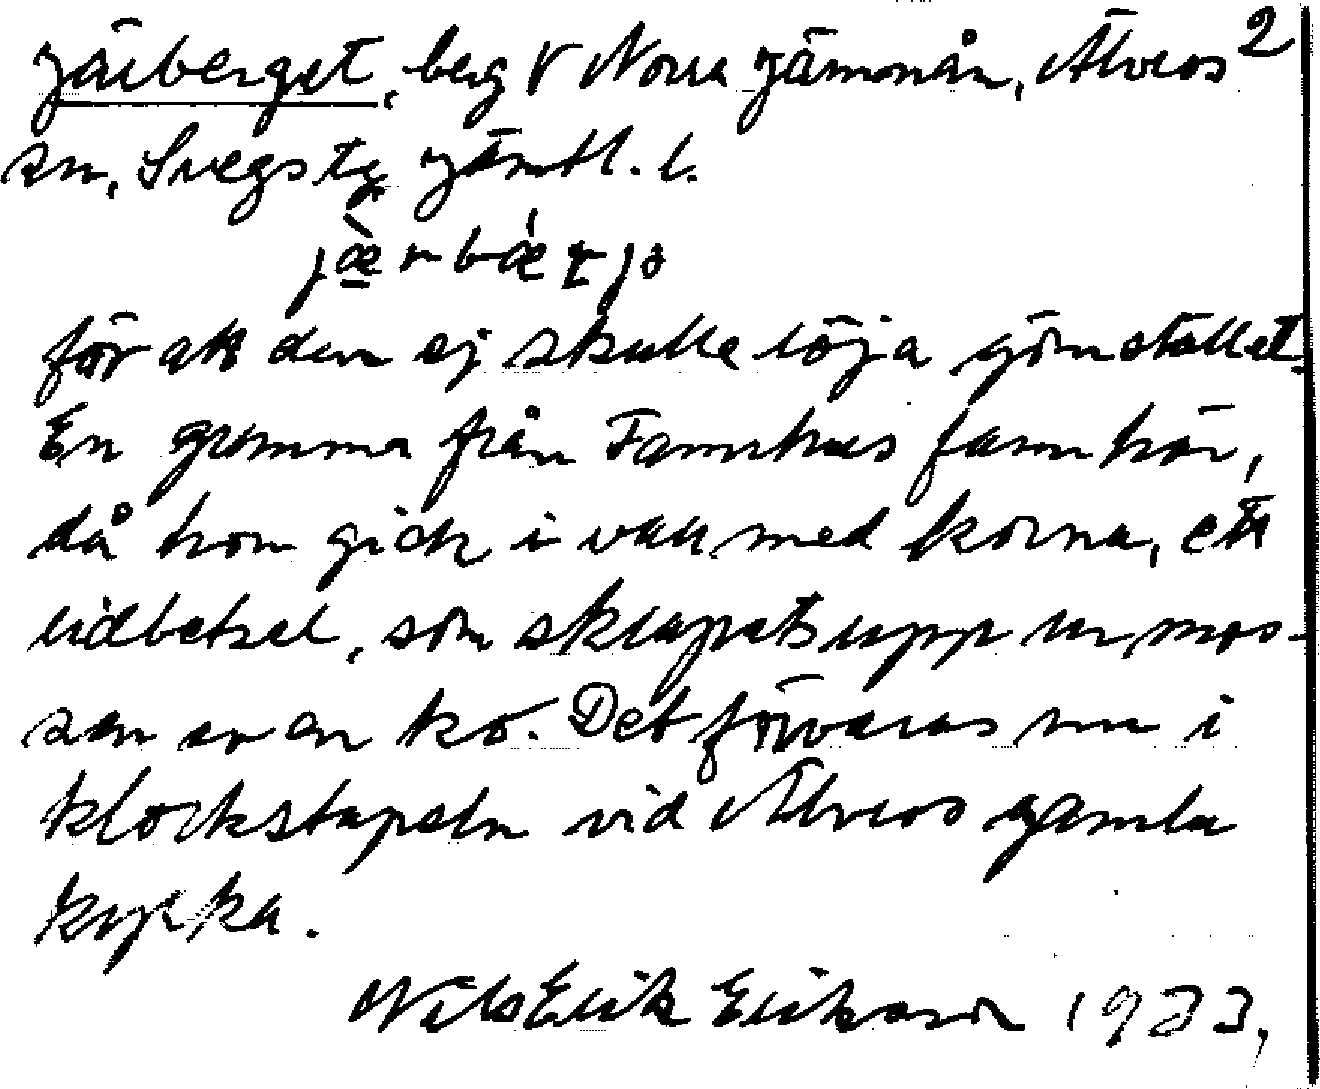 Järberget, berg V Norra Jämnån, Älvros 2
sn, Svegs tg Jämtl. l.
jæ̀rbǽrjə
för att den ej skulle röja gömstället.
En gumma från Fannhus fann här,
då hon gick i vall med korna, ett
ridbetsel, som skrapats upp ur mos-
san av en ko. Det förvaras nu i
klockstapeln vid Älvros gamla
kyrka.
Nils Erik Eriksson 1933,